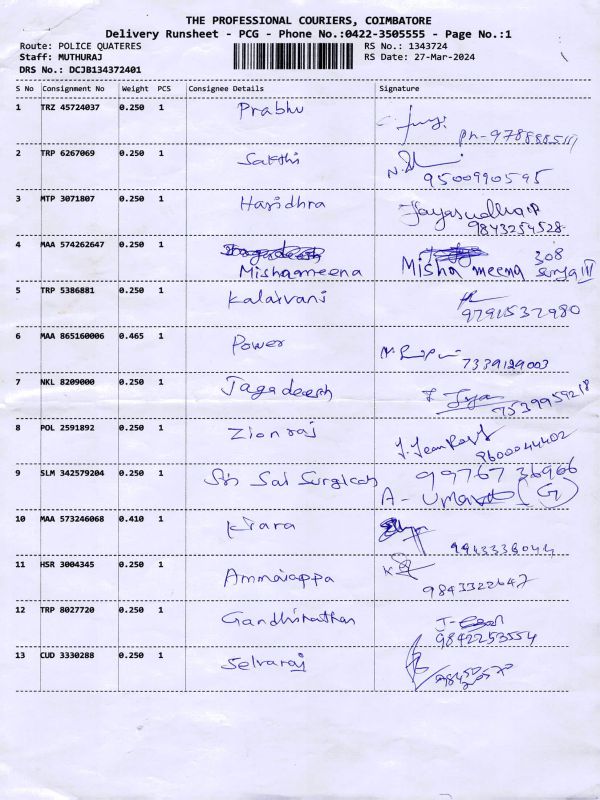 THE PROFESSIONAL COURIERS, COIMBATORE
Delivery Runsheet - PCG - Phone No.:0422-3505555 - Page No.:1
Route: POLICE QUATERES RS No.: 1343724
Staff: MUTHURAJ RS Date: 27-Mar-2024
DRS No.: DCJB134372401
S No Consignment No Weight PCS Consignee Details Signature
1 TRZ 45724037 0.250 1 Prabhu
Ph-
2 TRP 6267069 0.250 1 Sakthi
9500990595
3 MTP 3071807 0.250 1 Hasidhra Jayasudha
9843254528
4 MAA 574262647 0.250 1 Mishameena Misha meena 308
Surya III
5 TRP 5386881 0.250 1 Kalaivani
6 MAA 865160006 0.465 1 Power
7339129003
7 NKL 8209000 0.250 1 Jagadeesh
8 POL 2591892 0.250 1 Zionraj
9600044402
9 SLM 342579204 0.250 1 Sri Sai Surgicals 99767 36966
10 MAA 573246068 0.410 1 Kiara
11 HSR 3004345 0.250 1 Ammaiappa
9843322647
12 TRP 8027720 0.250 1 Gandhinathan
9842253554
13 CUD 3330288 0.250 1 Selvaraj